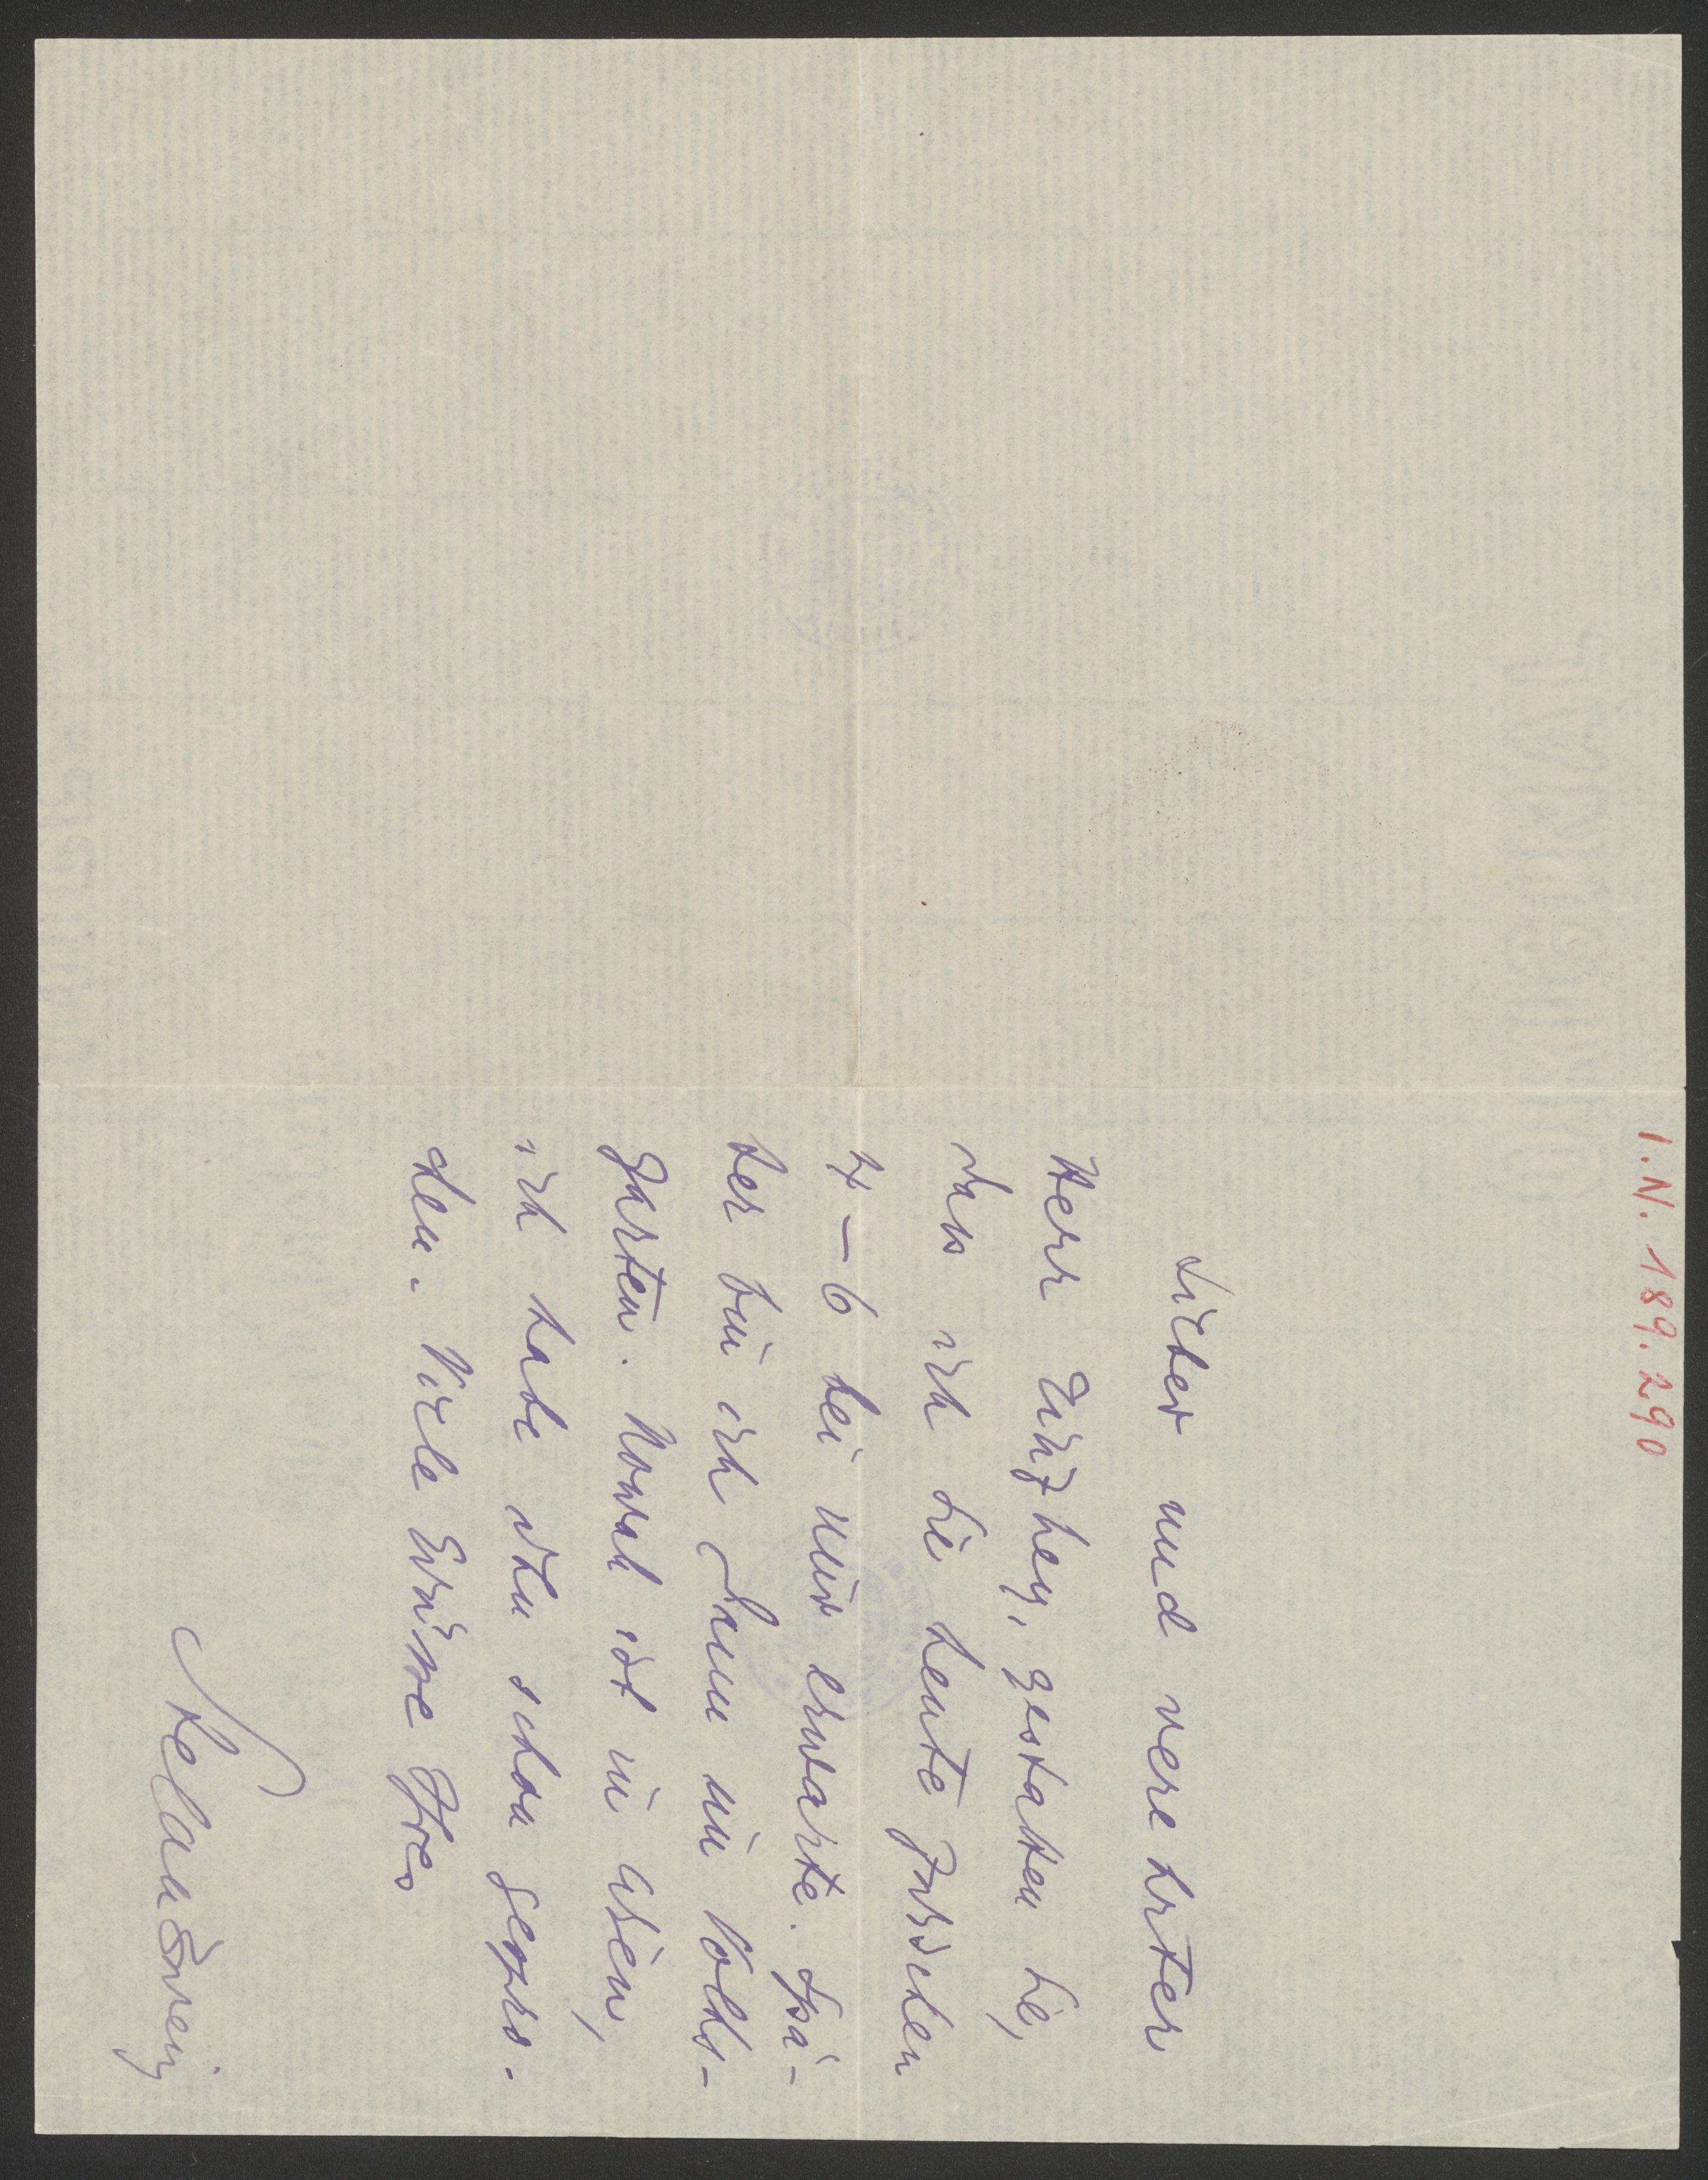 I.N. 189.290
Lieber und verehrter
Herr Ginzkey, gestatten Sie,
dass ich Sie heute zwischen
4 – 6 bei mir erwarte. Spä-
ter bin ich dann im Volks-
garten. Nowak ist in Wien,
ich habe ihn schon gespro-
chen. Viele Grüsse Ihres
Stefan Zweig